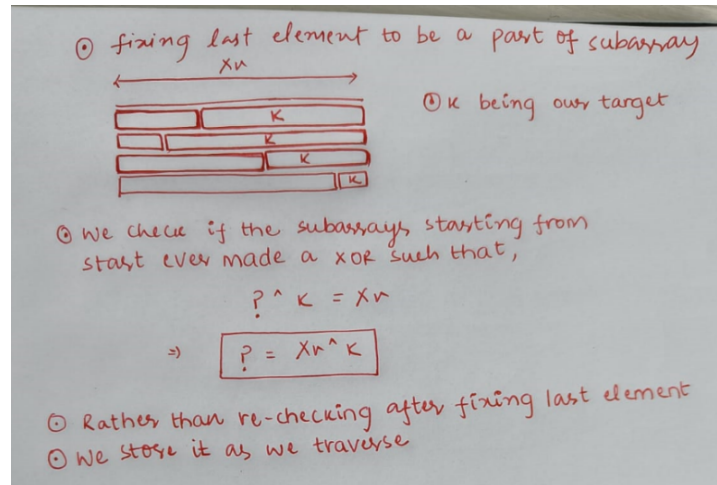 ⊙ fixing last element to be a part of subarray
Xr
K
K
K
K
⊙ K being our target
⊙ We check if the subarrays starting from
start ever made a XOR such that,
? ^ K = Xr
=> ? = Xr ^ K
⊙ Rather than re-checking after fixing last element
⊙ We store it as we traverse